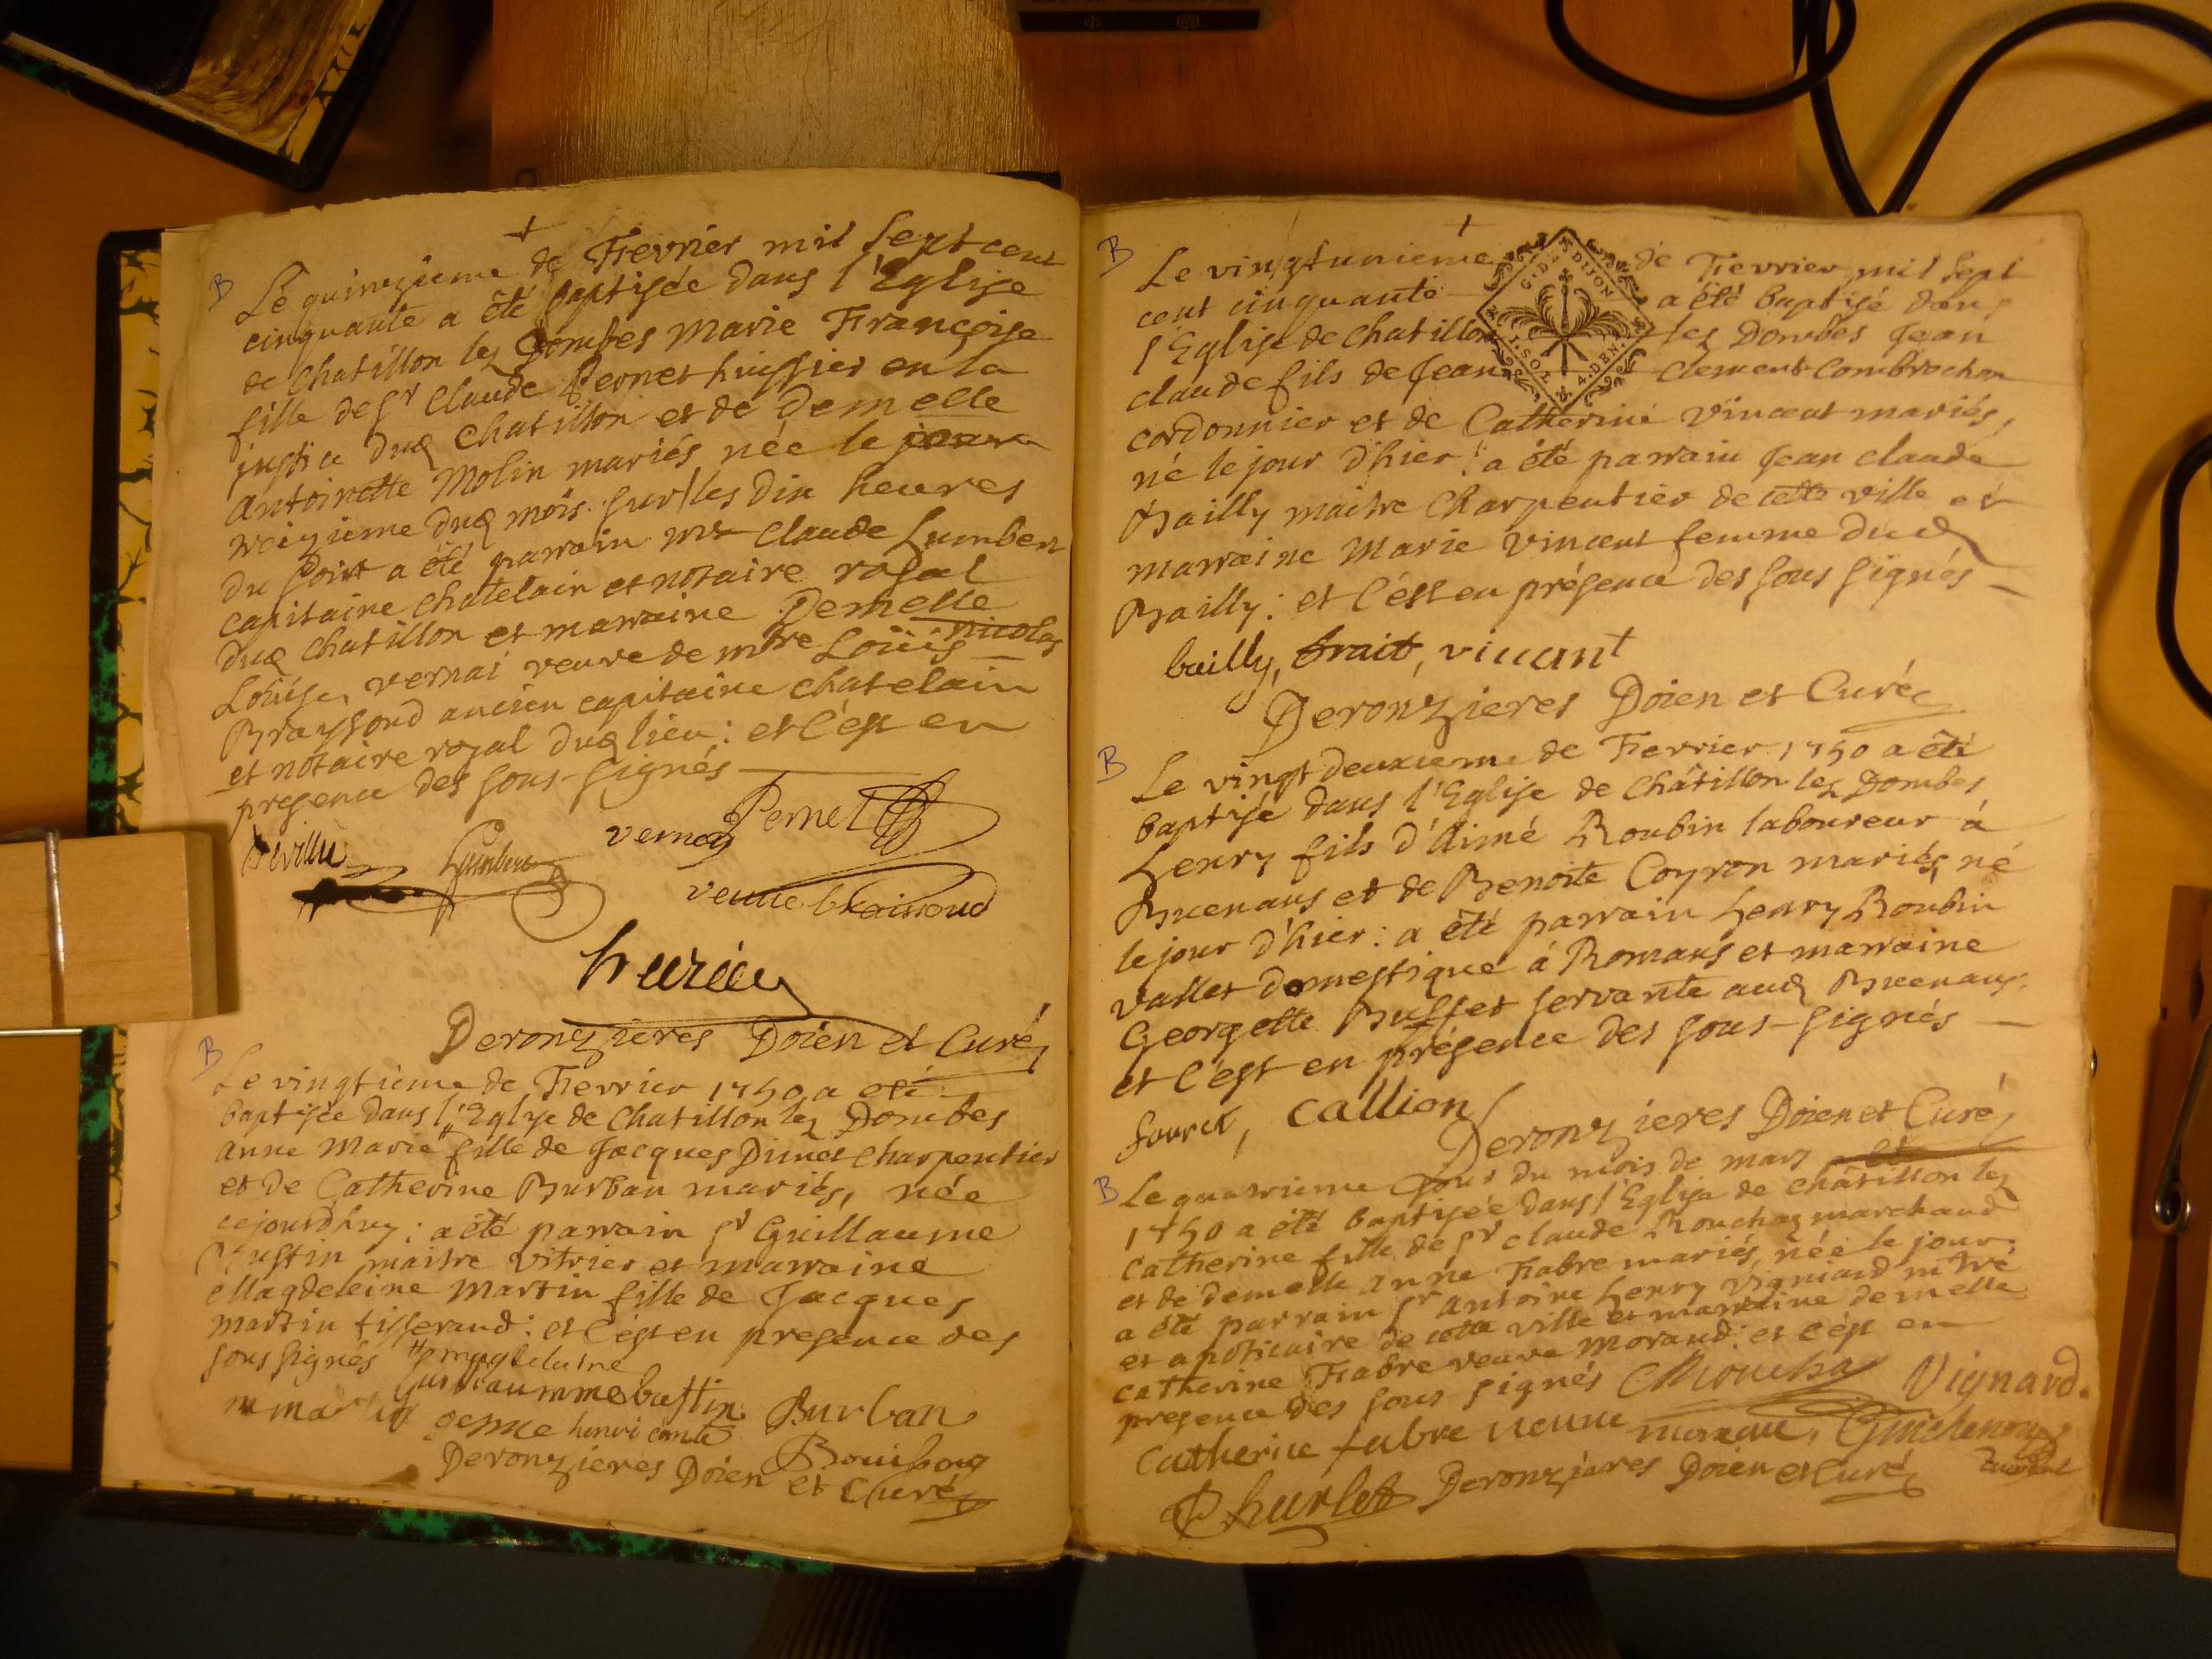 B
Le quinzieme de Fevrier mil sept cent
cinquante a été baptisée dans l'Eglise
de Chatillon lez Dombes Marie Françoise
fille de sr Claude Pernet huissier en la
justice dud Chatillon et de Demelle
Antoinette Molin mariés née le
treizieme dud mois sur les dix heures
du soir a été parrain mr Claude Lumbert
capitaine chatelain et notaire royal
dud Chatillon et marraine Demelle
Loüise vernai veuve de mtre Loüis nicolas
Brayssoud ancien capitaine chatelain
et notaire royal dud lieu : et c'est en
presence des sous-signés
Deville Lumbert vernay Pernet
veuve braissoud
Deronzieres Doien et Curé
B
Le vingtieme de Fevrier 1750 a eté
baptisée dans l'Eglise de Chatillon lez Dombes
anne Marie # fille de Jacques Dimet charpentier
et de Catherine Burban mariés, née
cejourdhuy : a été parrain sr Guillaume
Bustin maitre vitrier et marraine
Magdeleine Martin fille de Jacques
martin tisserand : et c'est en presence des
sous signés # magdelaine
bustin Burban
henri comte Bouibouz
Deronzieres Doien et Curé
B
Le vingtunieme de Fevrier mil sept
cent cinquante a été baptisé dans
l'Eglise de Chatillon lez Dombes Jean
claude fils de Jean Clement Combrochon
cordonnier et de Catherine Vincent mariés,
né le jour d'hier : a été parrain Jean claude
Bailly maitre Charpentier de cette ville et
marraine Marie Vincent femme dud
Bailly : et c'est en présence des sous signés
bailly, brait, vicant
Deronzieres Doien et Curé
B
Le vingt deuxieme de Fevrier 1750 a été
baptisé dans l'Eglise de Châtillon lez Dombes
henry fils d'Aimé Roubin laboureur à
Buenans et de Benoite Coyron mariés, né
le jour d'hier : a été parrain henry Roubin
vallet domestique à Romans et marraine
Georgette Buffet servante aud Buenans,
et c'est en présence des sous-signés
callion
Deronzieres Doien et Curé
B
Le quatrieme jour du mois de mars
1750 a été baptisée dans l'Eglise de châtillon lez
catherine fille de sr claude Rouchaz marchand
et de demelle anne Fabre mariés, née le jour
a été parrain sr antoine henry vigniard mtre
et apoticaire de cette ville et marraine demelle
catherine Fabre veuve Morand : et c'est en
presence des sous signés CRouchaz Vignard
Catherine fabre veuve Guichenon
Churlet Deronzieres Doien et Curé
G. D. DIJON
1. SOL. 4. DEN.